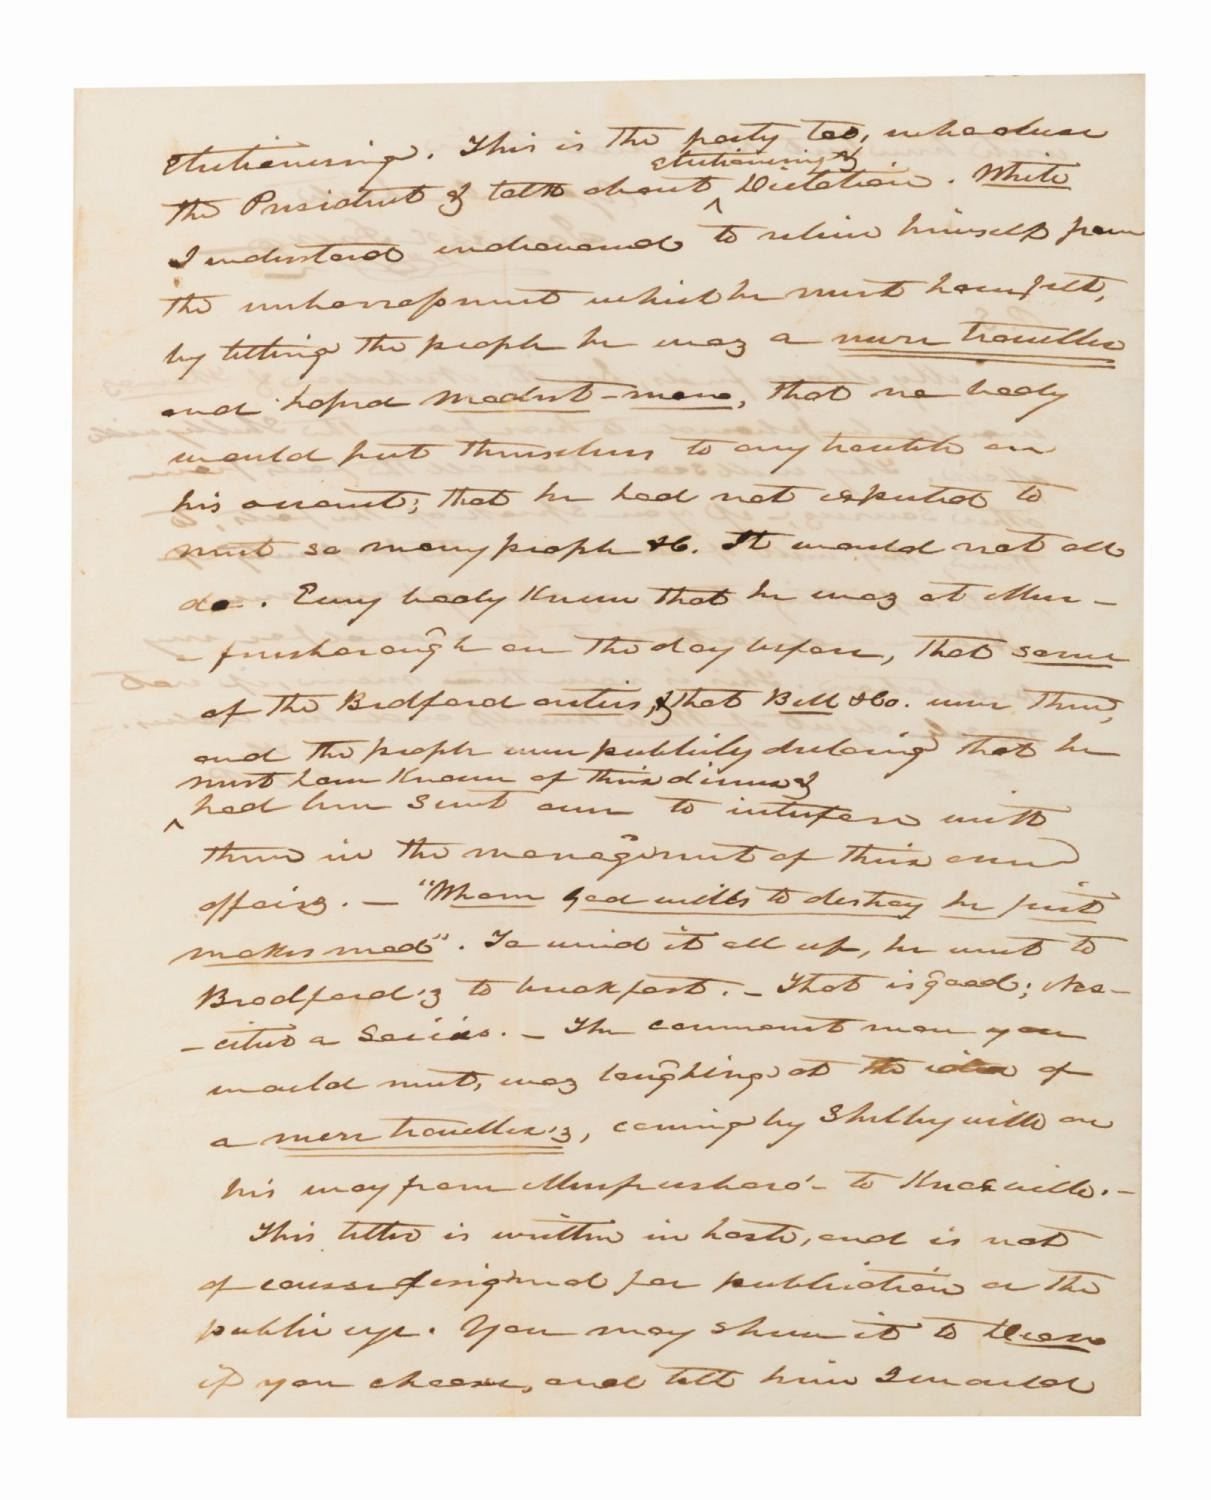 electioneering. This is the party too, who abuse
electioneering &
the President & talk about ^ Dictation. White
I understand endeavoured to relieve himself from
the embarrassment which he must have felt,
by telling the people he was a mere traveller
and hoped modest-man, that no body
would put themselves to any trouble on
his account; that he had not expected to
meet so many people &c. It would not all
do. Every body knew that he was at Mur-
-freesborough on the day before, that some
of the Bedford actives, & that Bell & Co. were there,
and the people were publicly declaring that he
must have known of this dinner &
^ had been sent over to interfere with
them in the management of their own
affairs. - "Whom God wills to destroy he first
makes mad". To wind it all up, he went to
Bradford's to breakfast. - That is good;
The commonest man you
would meet, was laughing at the idea of
a mere traveller's, coming by Shelbyville on
his way from Murfreesboro'- to Knoxville. -
This letter is written in haste, and is not
of course designed for publication or the
public eye. You may shew it to
if you choose, and tell him I would